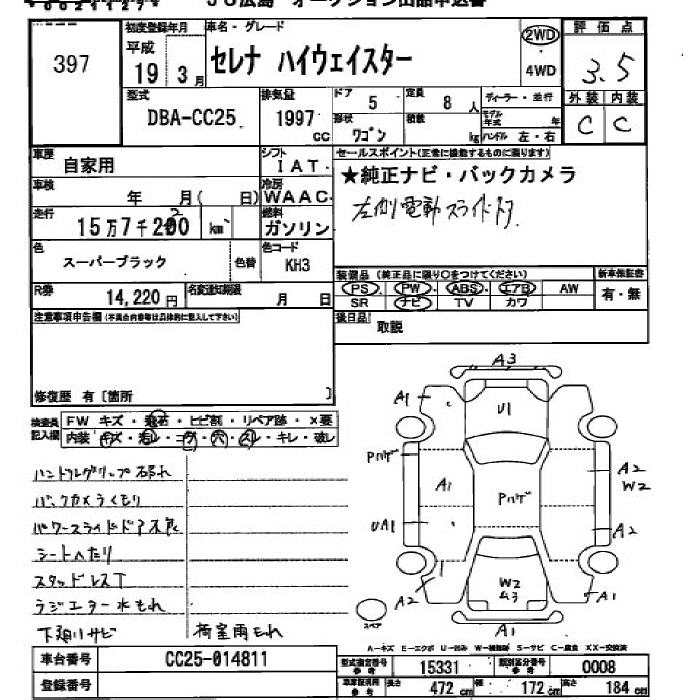 JU広島 オークション出品申込書
397
初度登録年月
平成
19年 3月
車名・グレード
セレナ ハイウェイスター
2WD
4WD
評価点
3.5
外装 内装
C C
型式
DBA-CC25
排気量
1997 cc
ドア 5
定員 8 人
形状 ワゴン
積載 kg
ディーラー・並行
モデル年式 年
ハンドル 左・右
車歴
自家用
シフト
IAT
車検
年 月( 日)
冷房
WAAC
走行
15万7千200 km
燃料
ガソリン
色
スーパーブラック
色替
色コード
KH3
R券
14,220円
名変通知期限
月 日
セールスポイント(正常に機能するものに限ります)
★純正ナビ・バックカメラ
左側電動スライドドア
装備品 (純正品に限り○をつけてください)
新車保証書
PS PW ABS エアB AW
有・無
SR ナビ TV カワ
後日品
取説
注意事項申告欄(不具合内容等は具体的に記入して下さい)
修復歴 有〔箇所 〕
検査員記入欄
FW キズ・飛石・ヒビ割・リペア跡・X要
内装・キズ・汚レ・コゲ・穴・スレ・キレ・破レ
ハンドルグリップ破れ
バックカメラくもり
パワースライドドア不良
シートへたり
スタッドレスT
ラジエター水もれ
下廻りサビ
荷室雨もれ
A3
A1
U1
Pハゲ
A2
W2
A1
Pハゲ
UA1
A2
W2
ム3
A2
A1
A1
スペア
A-キズ E-エクボ U-凹み W-補修跡 S-サビ C-腐食 XX-交換済
車台番号
CC25-014811
登録番号
型式指定番号
15331
類別区分番号
0008
車庫証明用参考
長さ 472 cm
幅 172 cm
高さ 184 cm